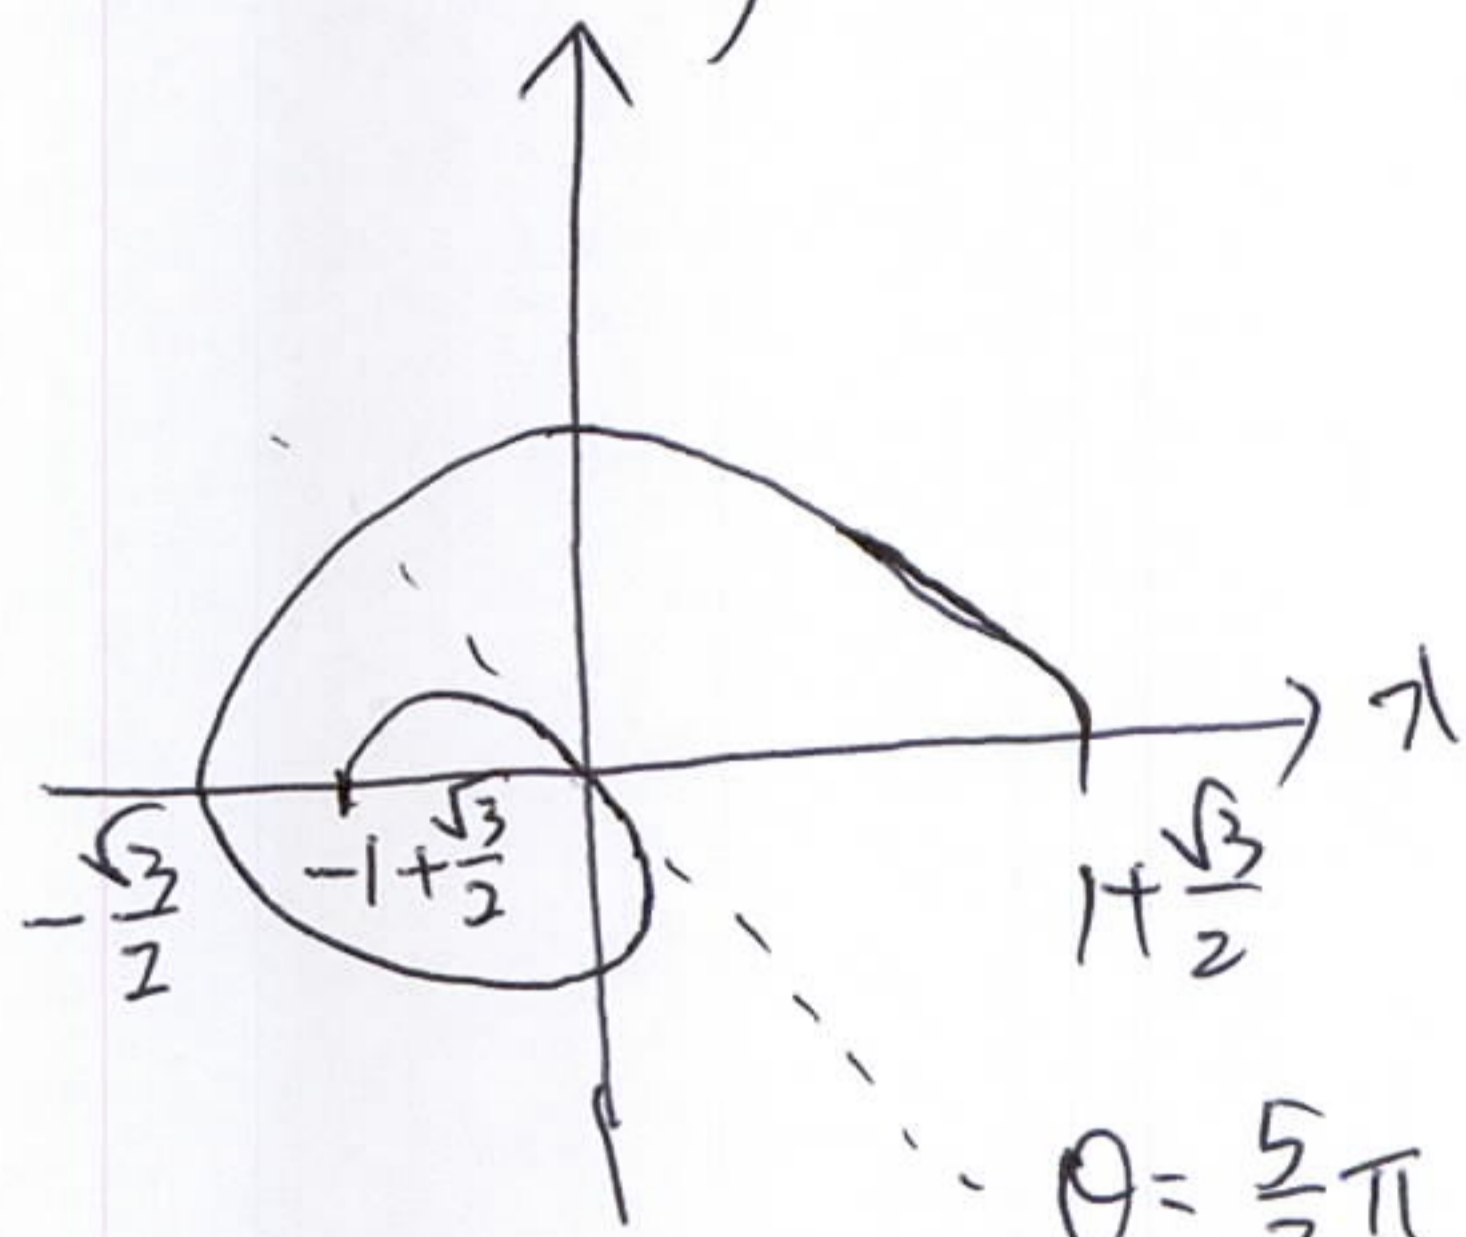 x
-√3/2
-1+√3/2
1+√3/2
θ= 5/3 π